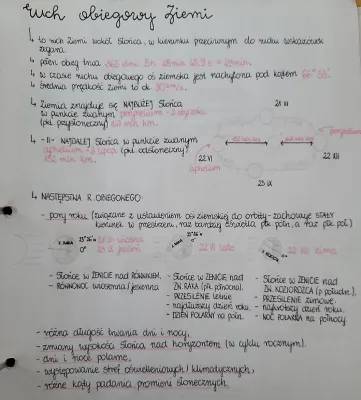 Ruch obiegowy Ziemi
↳ to ruch Ziemi wokół Słońca, w kierunku przeciwnym do ruchu wskazówek
zegara.
↳ pełen obieg trwa 365 dni 5h 48min
↳ w czasie ruchu obiegowego oś ziemska jest nachylona pod kątem 66°33'
↳ średnia prędkość Ziemi to ok. 30 km/s.
↳ Ziemia znajduje się NAJBLIŻEJ Słońca
w punkcie zwanym peryhelium
(pkt. przysłoneczny) 147 mln km.
↳ -||- NAJDALEJ Słońca w punkcie zwanym
aphelium
(pkt. odsłoneczny)
152 mln km.
21 III
22 VI
aphelium
23 IX
↳ NASTĘPSTWA R. OBIEGOWEGO:
- pory roku (związane z ustawieniem osi ziemskiej do orbity - zachowuje STAŁY
kierunek w przestrzeni, raz bardziej oświetla płk. półn., a raz płk. poł.)
21 III wiosna
23 IX jesień
22 VI lato
22 XII zima
- Słońce w ZENICIE nad RÓWNIKIEM.
- RÓWNONOC wiosenna / jesienna
- Słońce w ZENICIE nad
ZW. RAKA (płk. północna).
- PRZESILENIE letnie
- najdłuższy dzień roku.
- DZIEŃ POLARNY na półn.
- Słońce w ZENICIE nad
ZW. KOZIOROŻCA (p. południe.).
- PRZESILENIE zimowe.
- najkrótszy dzień roku.
- NOC POLARNA na północy
- różna długość trwania dni i nocy,
- zmiany wysokości Słońca nad horyzontem (w cyklu rocznym).
- dni i noce polarne,
- występowanie stref oświetleniowych / klimatycznych,
- różne kąty padania promieni słonecznych.